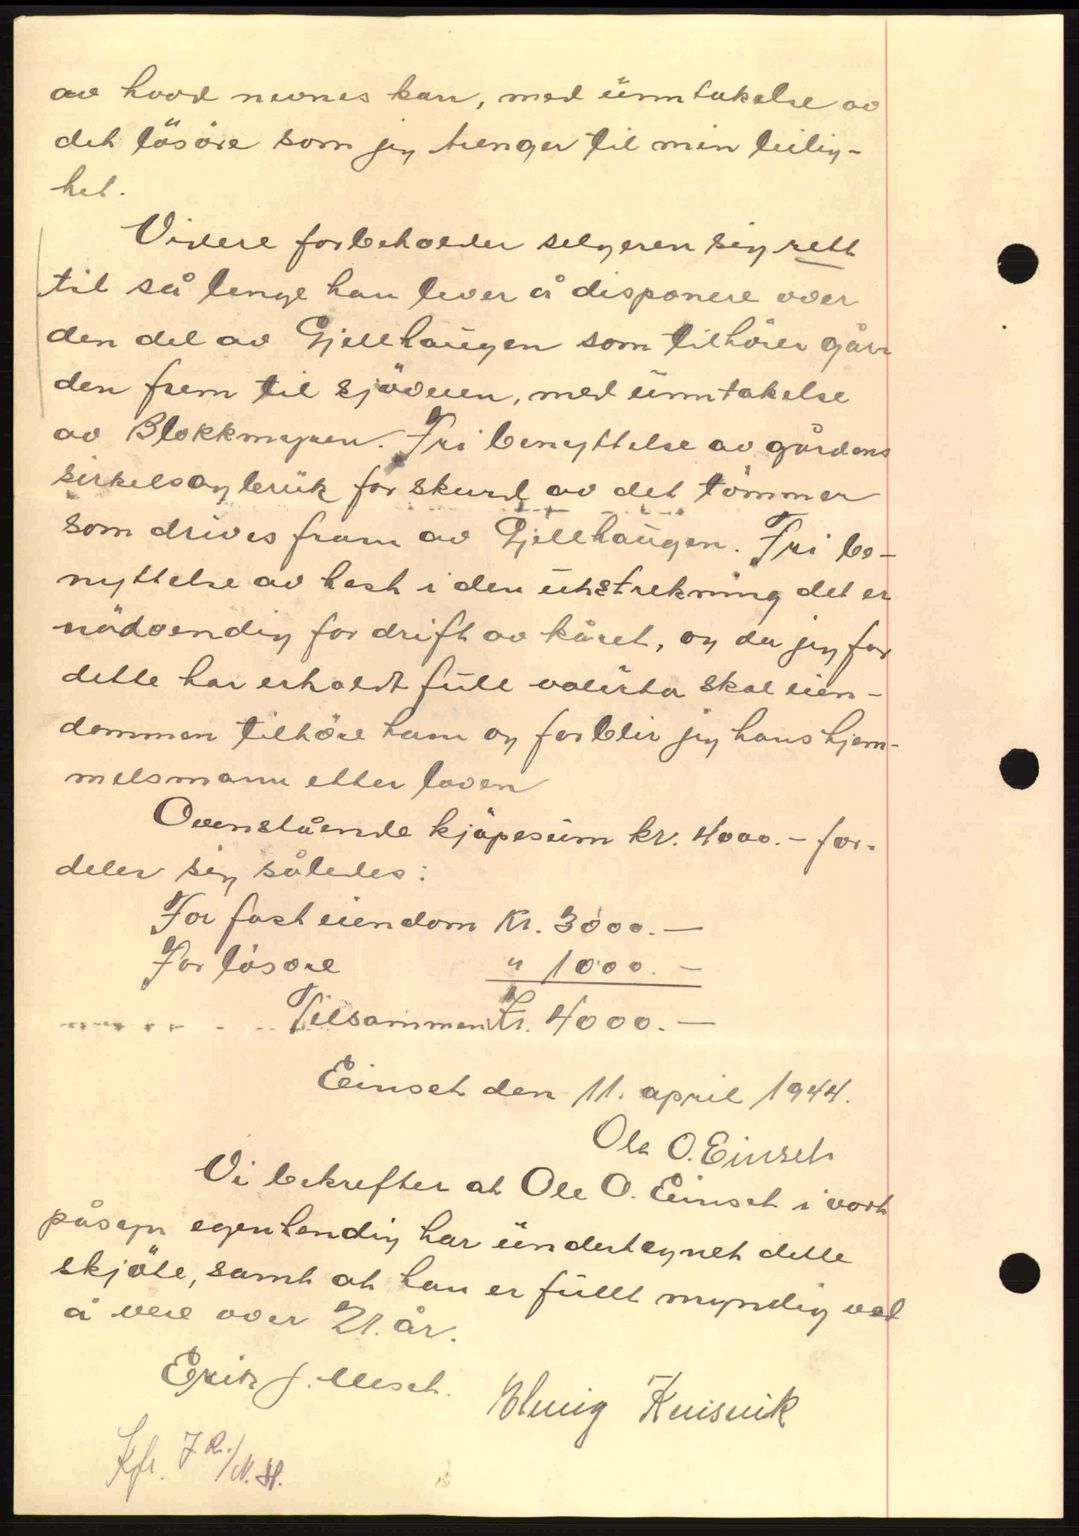 av hvad nevnes kan, med ünntakelse av
det lösöre som jeg trenger til min leilig-
het.
Videre forbeholder selgeren sig rett
til så lenge han lever å disponere over
den del av Gjellhaügen som tilhörer går-
den frem til sjöveien, med ünntakelse
av Blokkmyren. Fri benyttelse av gårdens
sirkelsagbrük for skurd av det tömmer
som drives fram av Gjellhaügen. Fri be-
nyttelse av hest i den ütstrekning det er
nödvendig for drift av kåret, og da jeg for
dette har erholdt füll valüta skal eien-
dommen tilhöre ham og forblir jeg hans hjem-
melsmann etter loven
Ovenstående kjöpesüm kr. 4000.- for-
deler sig således:
For fast eiendom Kr. 3000.-
For lösöre " 1000.-
Tilsammen Kr. 4000.-
Einset den 11. april 1944.
Ole O. Einset
Vi bekrefter at Ole O. Einset i vort
påsyn egenhendig har ündertegnet dette
skjöte, samt at han er füllt myndig ved
å vere over 21. år.
Erik J.
Kfr. J.R./N.H.